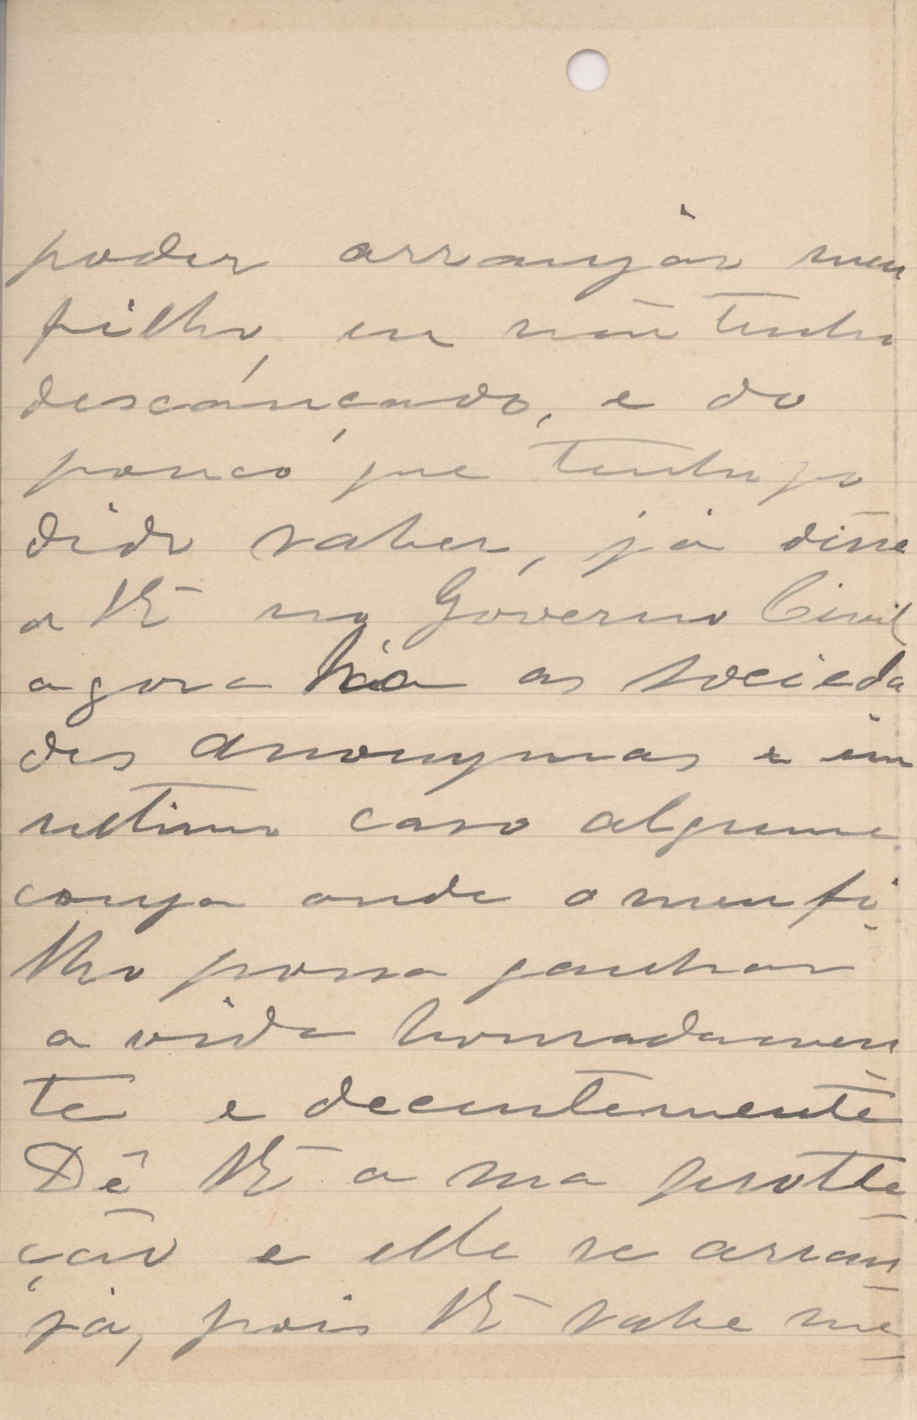 poder arranjár meu
filho, eu não tenho
descançado, e do
pouco que tenho po
dido saber, já disse
a VE no Governo Civil
agora há as socieda
des anonymas e em
ultimo caso alguma
couza onde o meu fi
lho possa ganhar
a vida honradamen
te e decentemente
Dê VE a sua prote
ção e elle se arran
já, pois VE sabe me